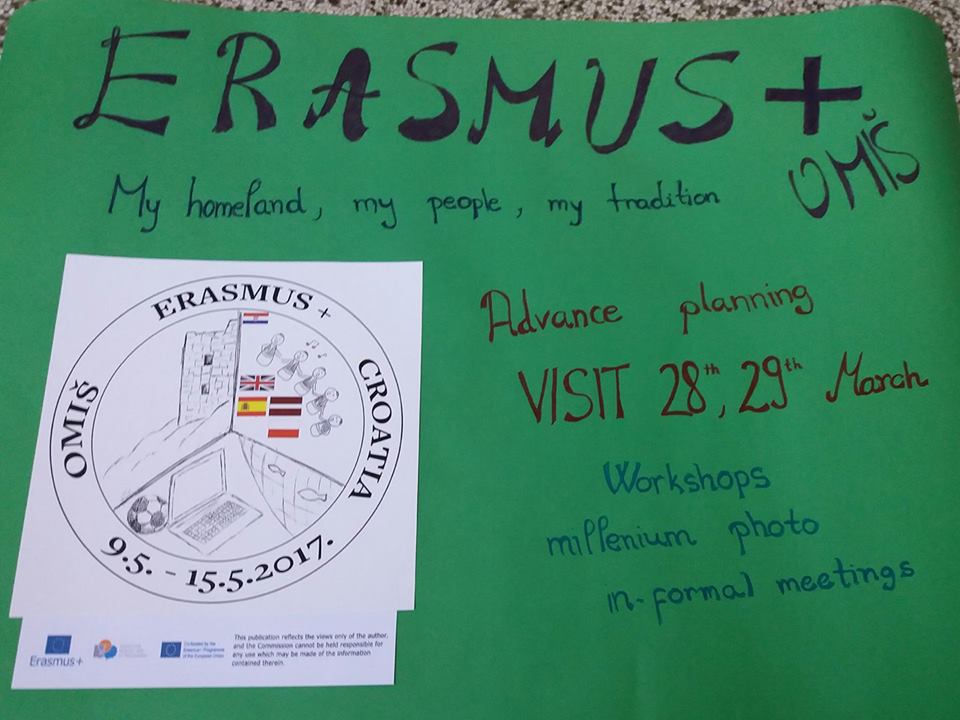 ERASMUS +
OMIŠ
My homeland, my people, my tradition
Advance planning
VISIT 28th, 29th March
Workshops
millenium photo
in-formal meetings
ERASMUS +
OMIŠ
CROATIA
9.5. - 15.5.2017.
Erasmus+
Co-funded by the
Erasmus+ Programme
of the European Union
This publication reflects the views only of the author,
and the Commission cannot be held responsible for
any use which may be made of the information
contained therein.